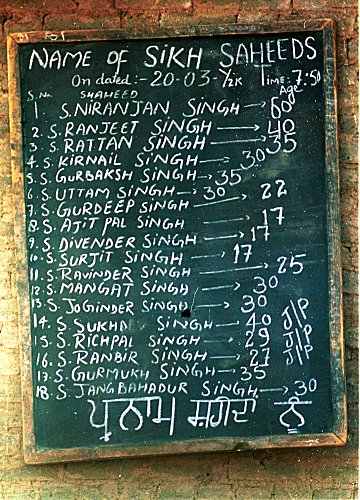 NAME OF SIKH SAHEEDS
On dated:- 20-03-Y2K Time: 7:50
S.No SHAHEED Age
1. S. NIRANJAN SINGH → 60
2. S. RANJEET SINGH → 40
3. S. RATTAN SINGH → 35
4. S. KIRNAIL SINGH → 30
5. S. GURBAKSH SINGH → 35
6. S. UTTAM SINGH → 30
7. S. GURDEEP SINGH → 22
8. S. AJIT PAL SINGH → 17
9. S. DIVENDER SINGH → 17
10. S. SURJIT SINGH → 17
11. S. RAVINDER SINGH → 25
12. S. MANGAT SINGH → 30
13. S. JOGINDER SINGH → 30
14. S. SUKHA SINGH → 40 J/P
15. S. RICHPAL SINGH → 29 J/P
16. S. RANBIR SINGH → 27 J/P
17. S. GURMUKH SINGH → 35
18. S. JANGBAHADUR SINGH → 30
ਪ੍ਰਨਾਮ ਸ਼ਹੀਦਾਂ ਨੂੰ